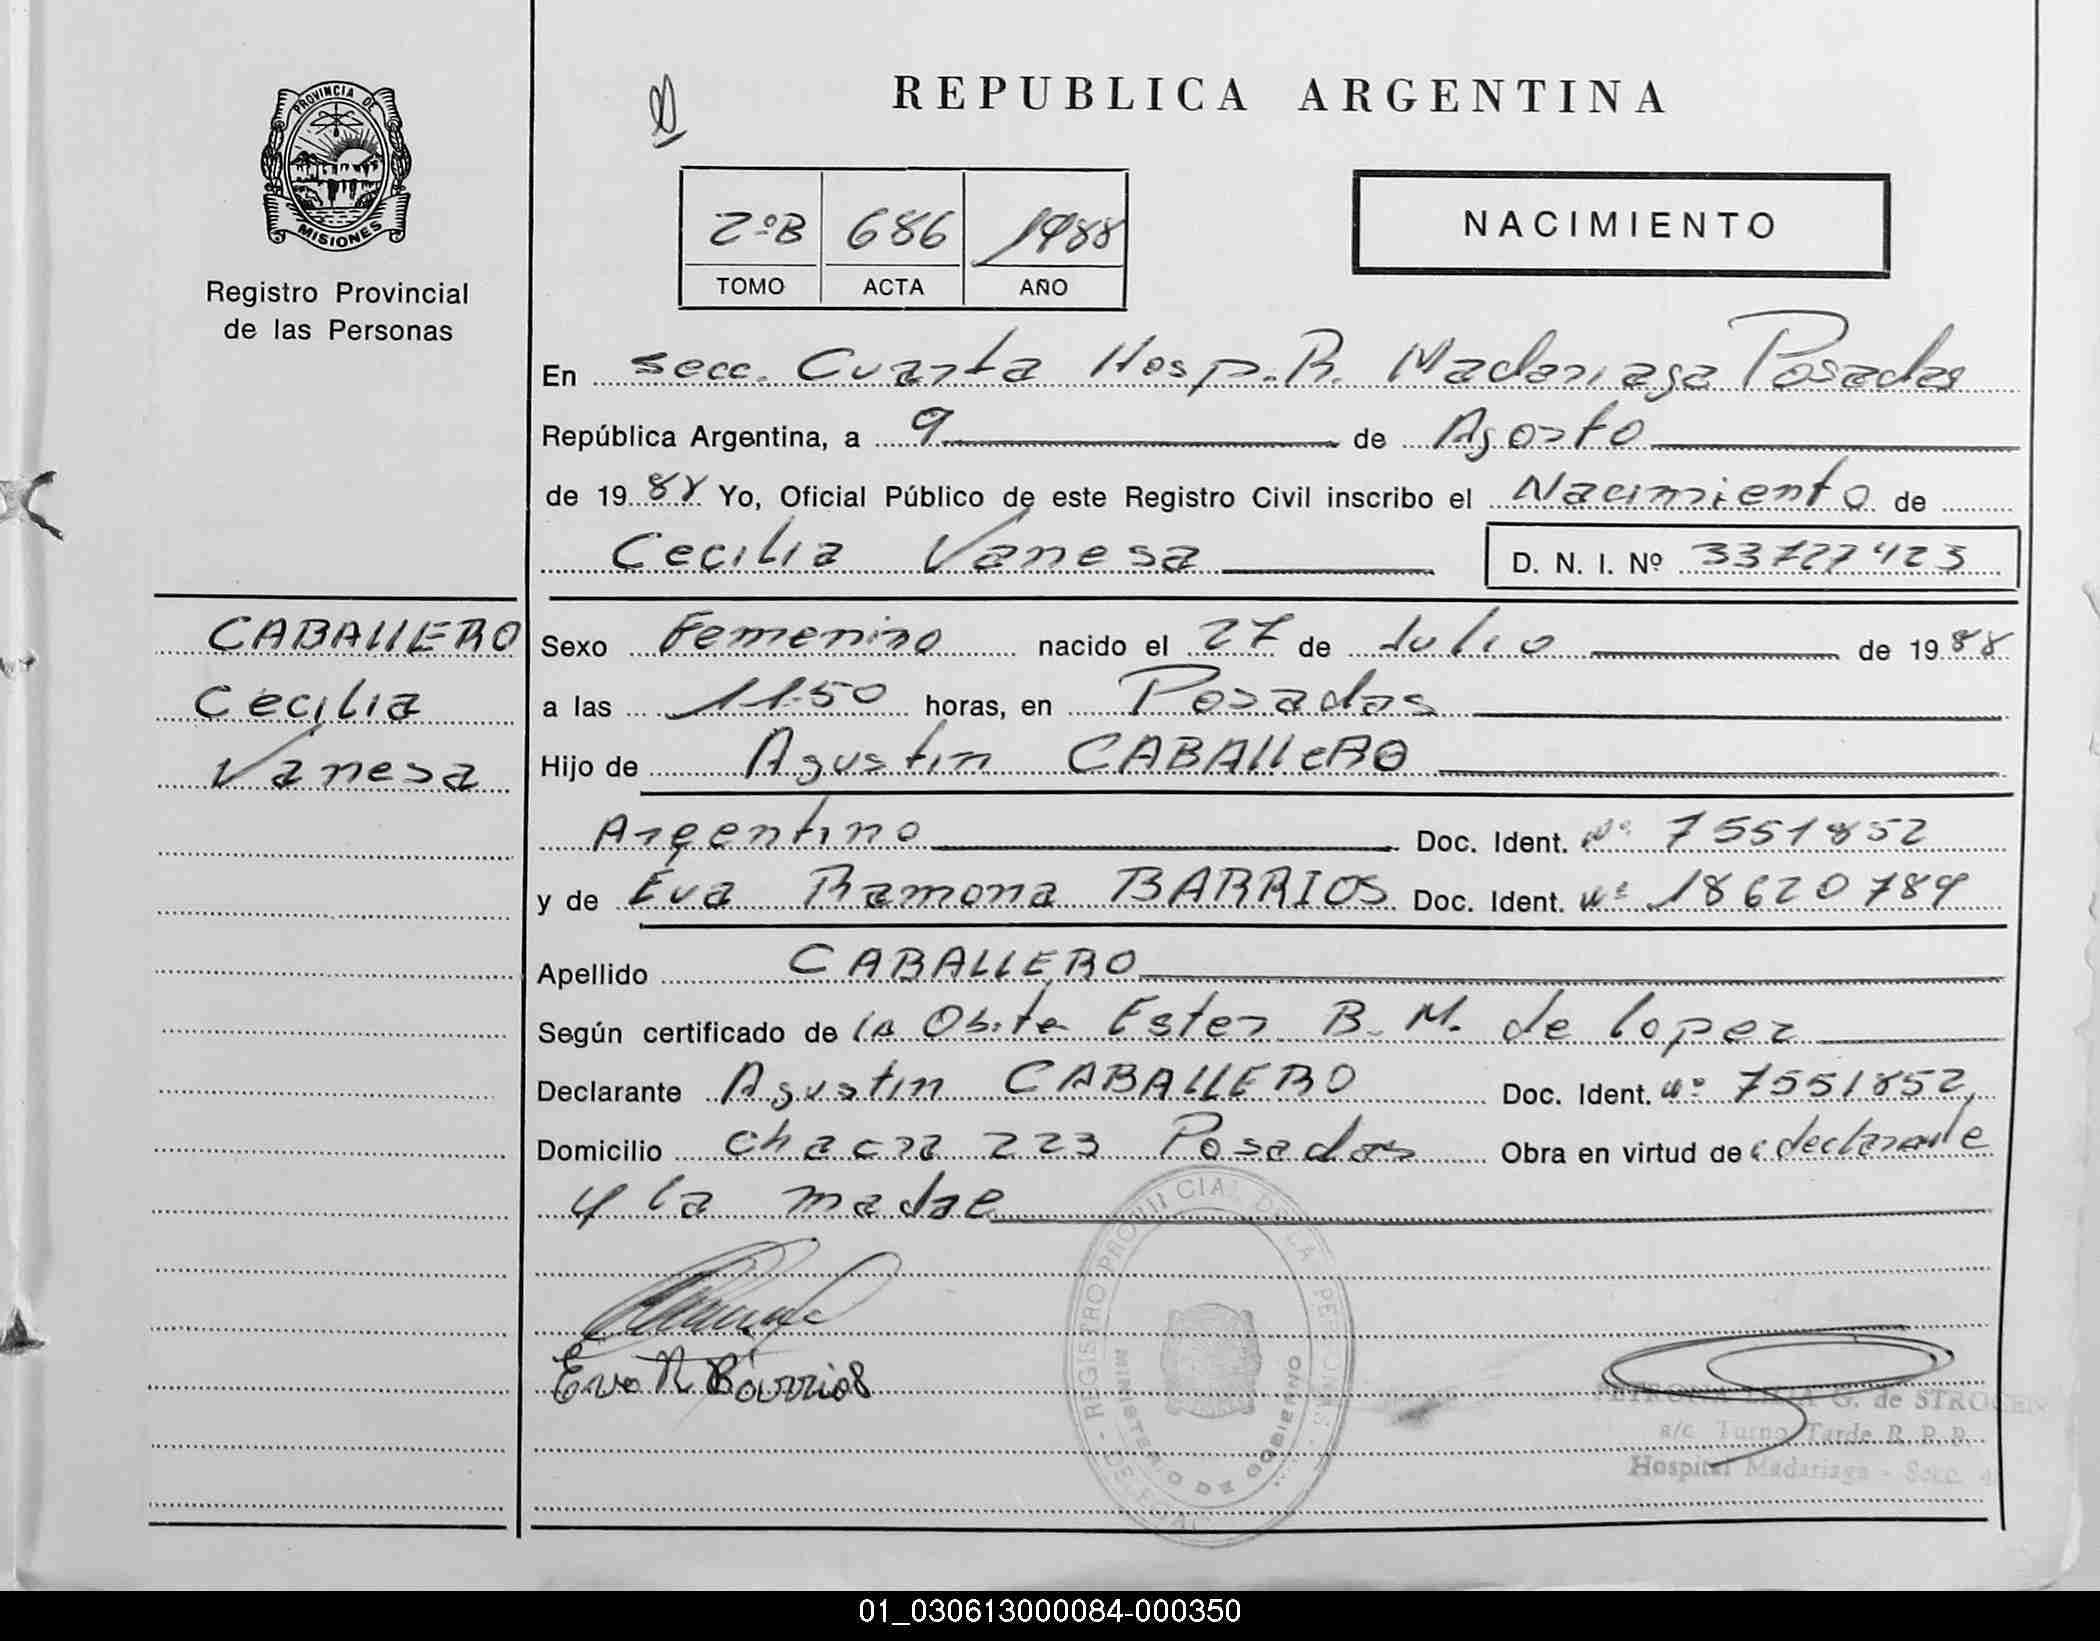 PROVINCIA DE
MISIONES
Registro Provincial
de las Personas
CABALLERO
Cecilia
Vanesa
REPUBLICA ARGENTINA
2ºB 686 1988
TOMO ACTA AÑO
NACIMIENTO
En secc. Cuarta Hosp. R. Madariaga Posadas
República Argentina, a 9 de Agosto
de 1988 Yo, Oficial Público de este Registro Civil inscribo el Nacimiento de
Cecilia Vanesa D. N. I. Nº 33727423
Sexo Femenino nacido el 27 de Julio de 1988
a las 11.50 horas, en Posadas
Hijo de Agustin CABALLERO
Argentino Doc. Ident. Nº 7551852
y de Eva Ramona BARRIOS Doc. Ident. Nº 18620789
Apellido CABALLERO
Según certificado de la Obste Ester B. M. de Lopez
Declarante Agustin CABALLERO Doc. Ident. Nº 7551852,
Domicilio Chacra 223 Posadas Obra en virtud de declarante
y la madre
Eva R Barrios
REGISTRO PROVINCIAL DE LAS PERSONAS
MINISTERIO DE GOBIERNO
G. de
a/c Turno Tarde R. P. P.
Hospital Madariaga - Secc. 4
01_030613000084-000350